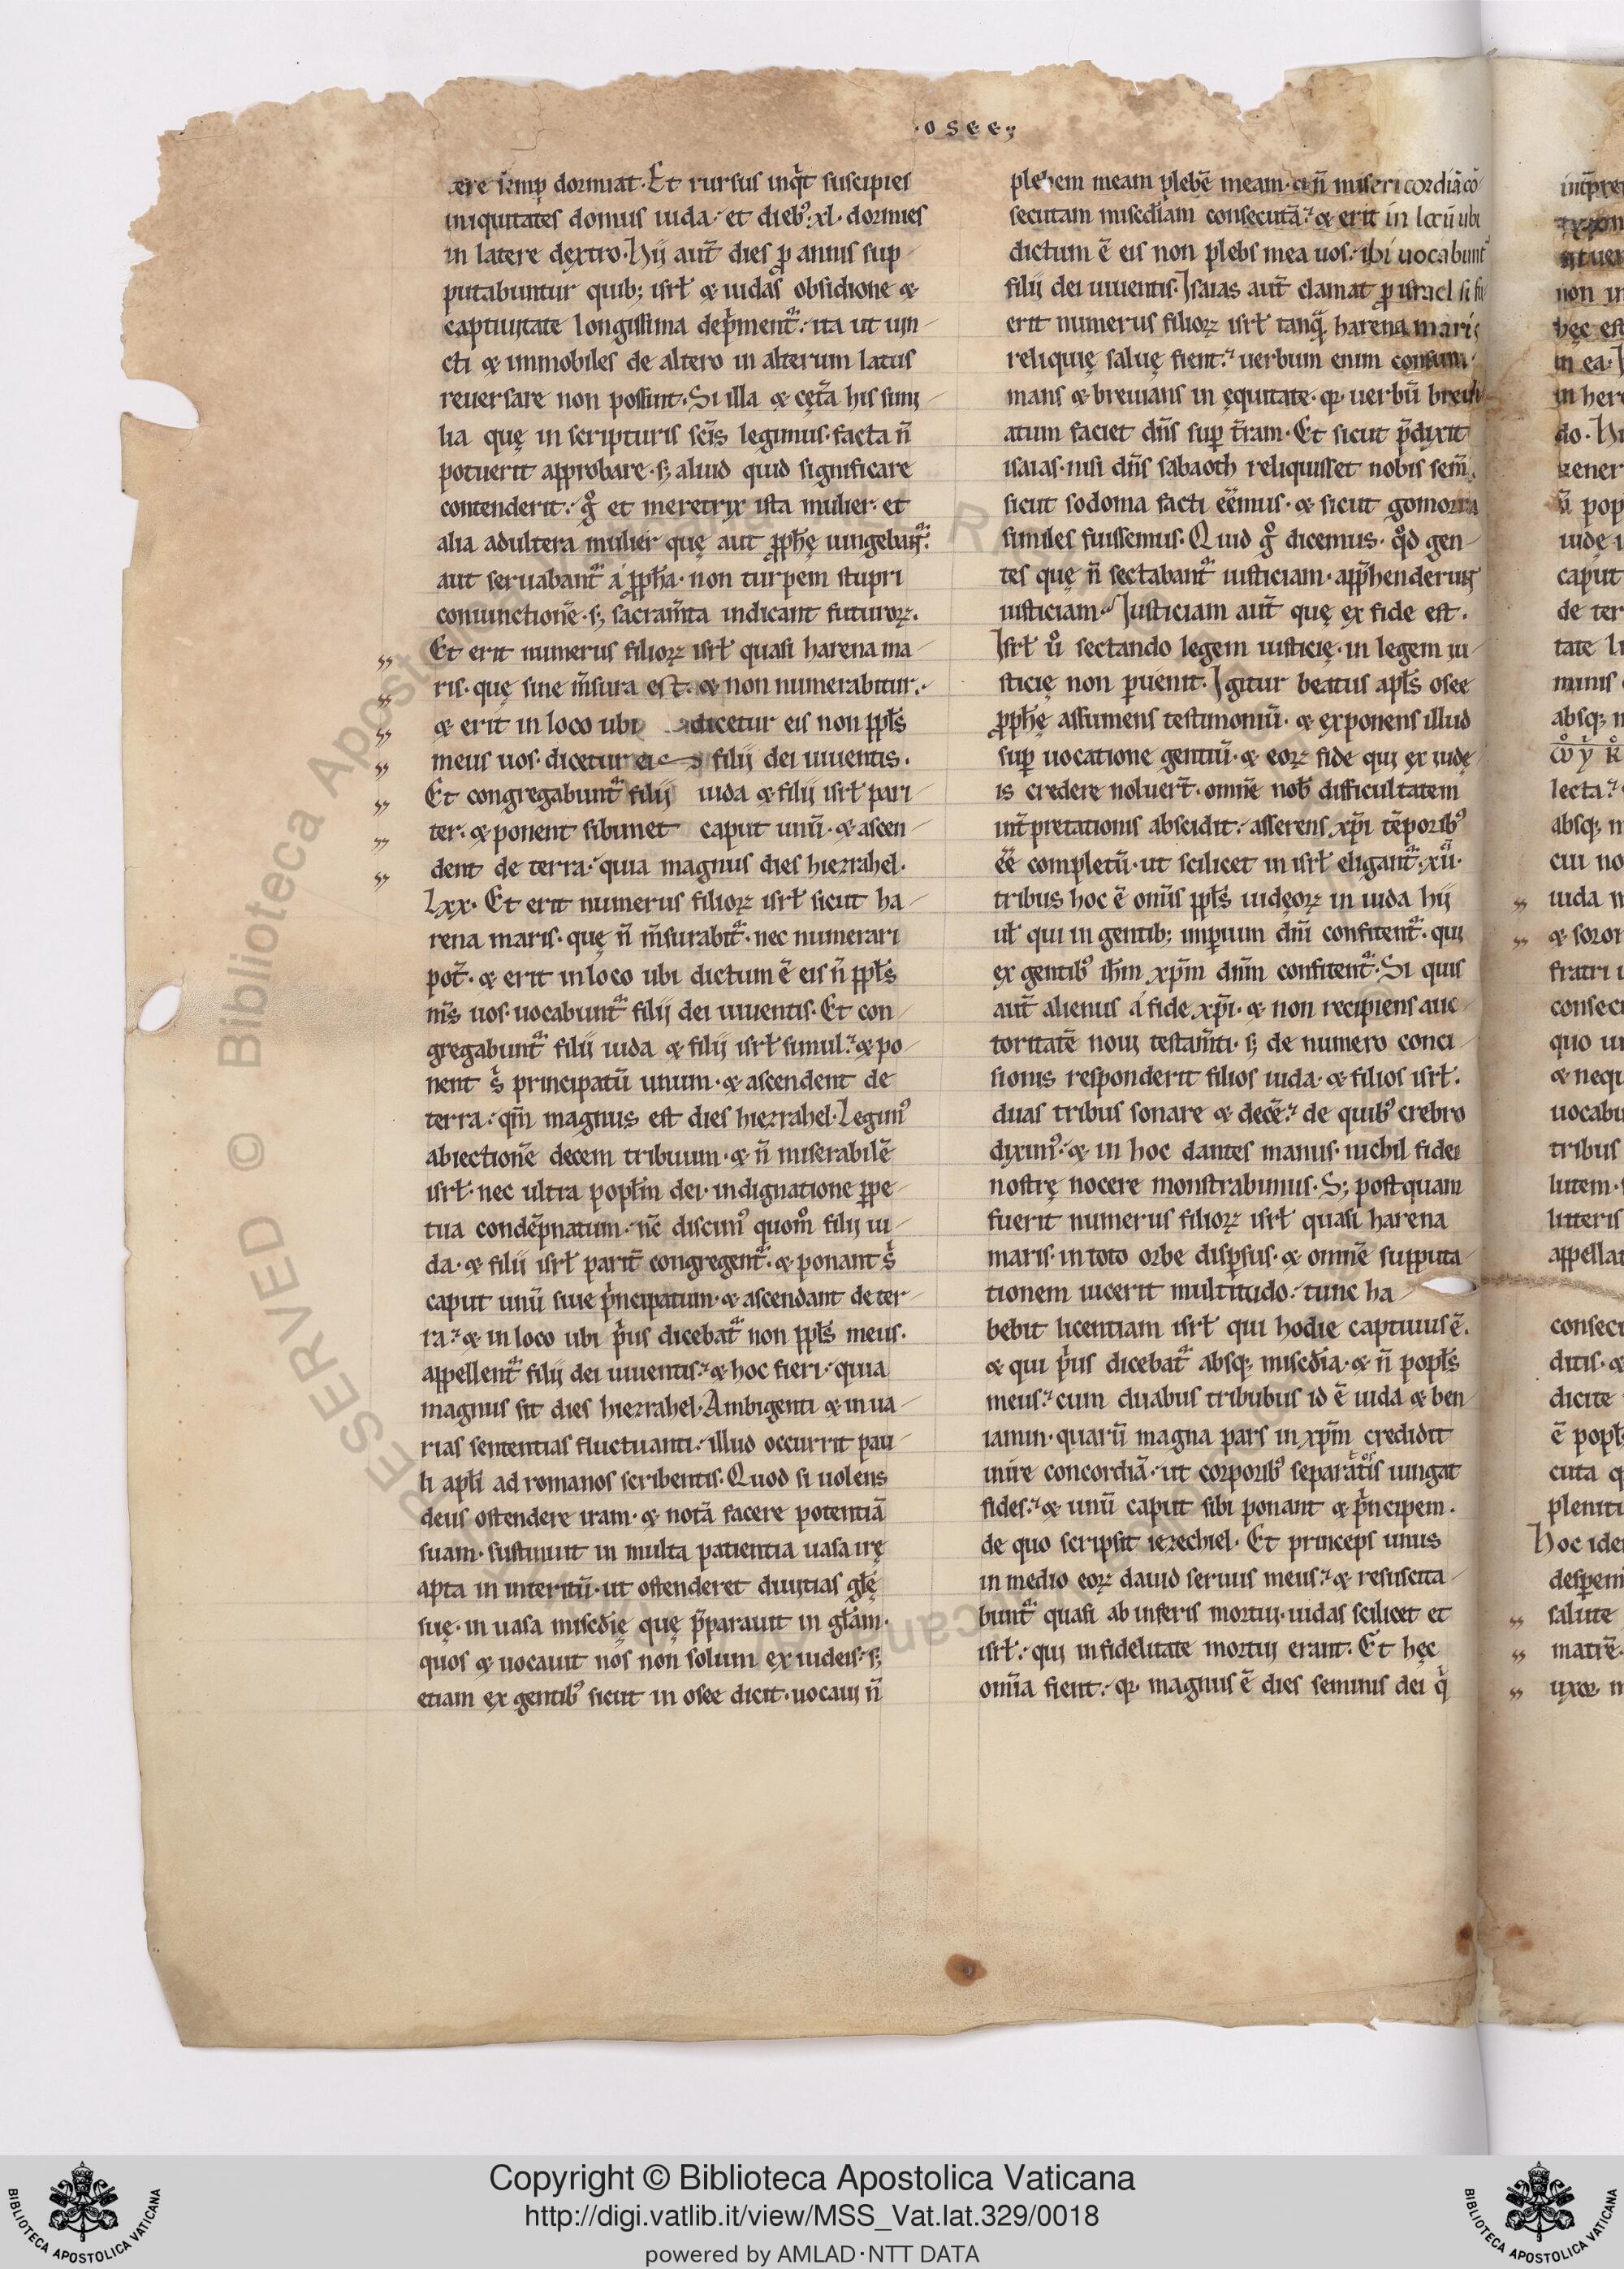 ·osee·
ere semp̄ dormiat. Et rursus inq̇t suscipies
iniquitates domus iuda. et dieb⁹ xl. dormies
in latere dextro. Hij aut̄ dies ꝓ annis sup
putabuntur quib; isrł & iudas obsidione &
captiuitate longissima dep̄ment᷑. ita ut uin
cti & immobiles de altero in alterum latus
reuersare non possint. Si illa & cęt̄a his simi
lia quę in scripturis sc̄is legimus. facta n̄
potuerit approbare. s; aliud quid significare
contenderit. g̊ et meretrix ista mulier. et
alia adultera mulier quę aut ꝓph̄ę iungebat᷑.
aut seruabant᷑ á ꝓph̄a. non turpem stupri
coniunctionē. s; sacram̄ta indicant futuroꝝ.
Et erit numerus filioꝝ isrł quasi harena ma
ris. quę sine m̄sura est. & non numerabitur.
& erit in loco ubi dicetur eis non ppl̄s
meus uos. dicetur eis filij dei uiuentis.
Et congregabunt᷑ filij iuda & filij isrł pari
ter. & ponent sibimet caput unū. & ascen
dent de terra. quia magnus dies hiezrahel.
Lxx. Et erit numerus filioꝝ isrł sicut ha
rena maris. quę n̄ m̄surabit᷑. nec numerari
pot̄. & erit in loco ubi dictum ē eis n̄ ppl̄s
m̄s uos. uocabunt᷑ filij dei uiuentis. Et con
gregabunt᷑ filij iuda & filij isrł simul. & po
nent s̄ principatū unum. & ascendent de
terra. qm̄ magnus est dies hiezrahel. Legim⁹
abiectionē decem tribuum. & n̄ miserabilē
isrł. nec ultra popl̄m dei. indignatione ꝑpe
tua condēpnatum. nc̄ discim⁹ quom̊ filij iu
da. & filii isrł parit̄ congregent᷑. & ponant s̄
caput unū siue p̄ncipatum. & ascendant de ter
ra. & in loco ubi p̄us dicebat᷑ non ppl̄s meus.
appellent᷑ filij dei uiuentis. & hoc fieri. quia
magnus sit dies hiezrahel. Ambigenti & in ua
rias sententias fluctuanti. illud occurrit pau
li apl̄i ad romanos scribentis. Quod si uolens
deus ostendere iram. & notā facere potentiā
suam. sustinuit in multa patientia uasa irę
apta in interitū. ut ostenderet diuitias gl̄ę
suę. in uasa misc̄dię quę p̄parauit in gl̄am.
quos & uocauit nos non solum ex iudeis. s;
etiam ex gentib⁹ sicut in osee dicit. uocaui n̄
plebem meam plebē meam. & n̄ misericordiā cō
secutam misc̄diam consecutā. & erit in locū ubi
dictum ē eis non plebs mea uos. ibi uocabunt᷑
filij dei uiuentis. Isaias aut̄ clamat ꝓ israel si fu
erit numerus filioꝝ isrł tanq̄ harena maris
reliquię saluę fient. uerbum enim consum
mans & breuians in ęquitate. qꝛ uerbū breui
atum faciet dn̄s sup̄ t̄ram. Et sicut p̄dixit
isaias. nisi dn̄s sabaoth reliquisset nobis sem̄.
sicut sodoma facti eēmus. & sicut gomorra
similes fuissemus. Quid g̊ dicemus. qd̄ gen
tes quę n̄ sectabant᷑ iusticiam. app̄henderunt
iusticiam. Iusticiam aut̄ quę ex fide est.
Isrł ů sectando legem iusticię. in legem iu
sticię non ꝑuenit. Igitur beatus apl̄s osee
ꝓph̄ę assumens testimoniū. & exponens illud
sup̄ uocatione gentiū. & eoꝝ fide qui ex iudę
is credere noluer̄t. omnē nob̄ difficultatem
int̄pretationis abscidit. asserens xp̄i tēporib⁹
eē completū. ut scilicet in isrł eligant᷑ xii.
tribus hoc ē om̄s ppl̄s iudęoꝝ in iuda hij
ul̄ qui in gentib; imperium dn̄i confitent᷑. qui
ex gentib⁹ ih̄m xp̄m dn̄m confitent᷑. Si quis
aut̄ alienus á fide xp̄i. & non recipiens auc
toritatē noui testam̄ti. s; de numero conci
sionis responderit filios iuda. & filios isrł.
duas tribus sonare & decē. de quib⁹ crebro
dixim⁹. & in hoc dantes manus. nichil fidei
nostrę nocere monstrabimus. S; postquam
fuerit numerus filioꝝ isrł quasi harena
maris. in toto orbe disp̄sus. & omnē supputa
tionem uicerit multitudo. tunc ha
bebit licentiam isrł qui hodie captiuus ē.
& qui p̄us dicebat᷑ absq; misc̄dia. & n̄ popl̄s
meus. cum duabus tribubus id ē iuda & ben
iamin. quarū magna pars in xp̄m credidit
inire concordiā. ut corporib⁹ separatis iungat
fides. & unū caput sibi ponant & p̄ncipem.
de quo scripsit iezechiel. Et princeps unus
in medio eoꝝ dauid seruus meus. & resuscita
bunt᷑ quasi ab inferis mortui. iudas scilicet et
isrł. qui infidelitate mortui erant. Et hęc
om̄ia fient. qꝛ magnus ē dies seminis dei q̄
non in
hęc est
in ea.
in here
do.
gener
n̄ pop
iudę
caput
de ter
tate
minis
absq;
lecta.
absq;
cui no
iuda
& soror
fratri
consec
quo
& nequ
uocabu
tribus
lutem.
litteris
appella
consec
ditis. &
dicite
ē popl̄
cuta
pleniti
Hoc ide
salute
matrē.
uxor
Copyright © Biblioteca Apostolica Vaticana
http://digi.vatlib.it/view/MSS_Vat.lat.329/0018
powered by AMLAD·NTT DATA
BIBLIOTECA APOSTOLICA VATICANA
BIBLIOTECA APOSTOLICA VATICANA